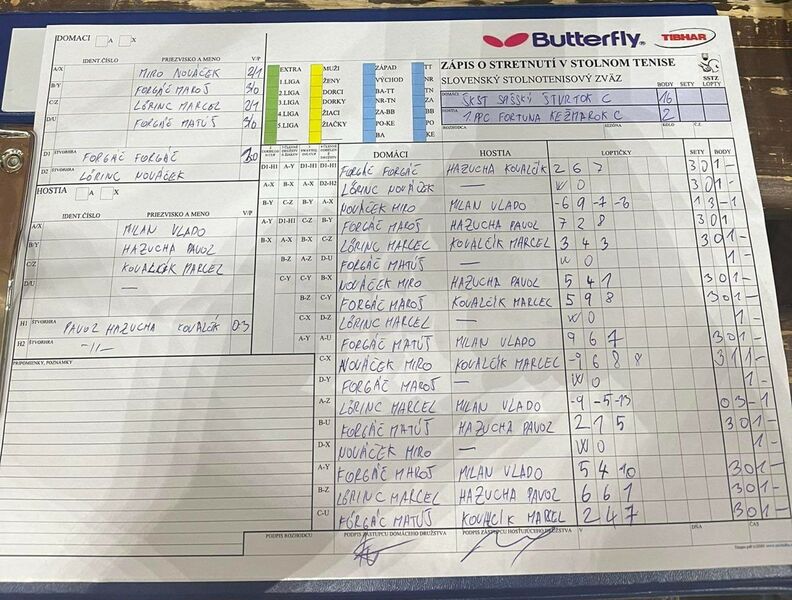 Butterfly TIBHAR
ZÁPIS O STRETNUTÍ V STOLNOM TENISE
SLOVENSKÝ STOLNOTENISOVÝ ZVÄZ
SSTZ
DOMÁCI A X
IDENT ČÍSLO PRIEZVISKO A MENO V/P
A/X MIRO NOVÁČEK 2/1
B/Y FORGÁČ MAROŠ 3/0
C/Z LÖRINC MARCEL 2/1
D/U FORGÁČ MATÚŠ 3/0
D1 ŠTVORHRA FORGÁČ FORGÁČ
D2 ŠTVORHRA LÖRINC NOVÁČEK
EXTRA MUŽI ZÁPAD TT
1.LIGA ŽENY VÝCHOD NR
2.LIGA DORCI BA-TT TN
3.LIGA DORKY NR-TN ZA
4.LIGA ŽIACI ZA-BB BB
5.LIGA ŽIAČKY PO-KE PO
BA KE
BODY SETY LOPTY
DOMÁCI ŠKST SPIŠSKÝ ŠTVRTOK C 16
HOSTIA 1.PPC FORTUNA KEŽMAROK C 2
ROZHODCA SEZÓNA KOLO Č.
HOSTIA A X
IDENT ČÍSLO PRIEZVISKO A MENO V/P
A/X MILAN VLADO
B/Y HAZUCHA PAVOL
C/Z KOVALČÍK MARCEL
D/U —
H1 ŠTVORHRA PAVOL HAZUCHA KOVALČÍK 0/3
H2 ŠTVORHRA -11-
PRIPOMIENKY, POZNÁMKY
DOMÁCI HOSTIA LOPTIČKY SETY BODY
D1-H1 A-Y D1-H1 D1-H1 FORGÁČ FORGÁČ HAZUCHA KOVALČÍK 2 6 7 3 0 1 -
A-X B-X A-X D2-H2 LÖRINC NOVÁČEK — W O 3 0 1 -
B-Y C-Z B-Y A-X NOVÁČEK MIRO MILAN VLADO -6 9 -7 -6 1 3 - 1
A-Y D1-H1 C-Z B-Y FORGÁČ MAROŠ HAZUCHA PAVOL 7 2 8 3 0 1
B-X A-X B-X C-Z LÖRINC MARCEL KOVALČÍK MARCEL 3 4 3 3 0 1 -
B-Z A-Z D-U FORGÁČ MATÚŠ — W O 1 -
C-Y C-Y B-X NOVÁČEK MIRO HAZUCHA PAVOL 5 4 1 3 0 1 -
B-Z C-Y FORGÁČ MAROŠ KOVALČÍK MARCEL 5 9 8 3 0 1 -
C-X D-Z LÖRINC MARCEL — W O 1 -
A-Y A-U FORGÁČ MATÚŠ MILAN VLADO 9 6 7 3 0 1 -
C-X NOVÁČEK MIRO KOVALČÍK MARCEL -9 6 8 8 3 1 1 -
D-Y FORGÁČ MAROŠ — W O 1 -
A-Z LÖRINC MARCEL MILAN VLADO -9 -5 -13 0 3 - 1
B-U FORGÁČ MATÚŠ HAZUCHA PAVOL 2 1 5 3 0 1 -
D-X NOVÁČEK MIRO — W O 1 -
A-Y FORGÁČ MAROŠ MILAN VLADO 5 4 10 3 0 1 -
B-Z LÖRINC MARCEL HAZUCHA PAVOL 6 6 1 3 0 1 -
C-U FORGÁČ MATÚŠ KOVALČÍK MARCEL 2 4 7 3 0 1 -
PODPIS ROZHODCU PODPIS ZÁSTUPCU DOMÁCEHO DRUŽSTVA PODPIS ZÁSTUPCU HOSŤUJÚCEHO DRUŽSTVA V DŇA ČAS